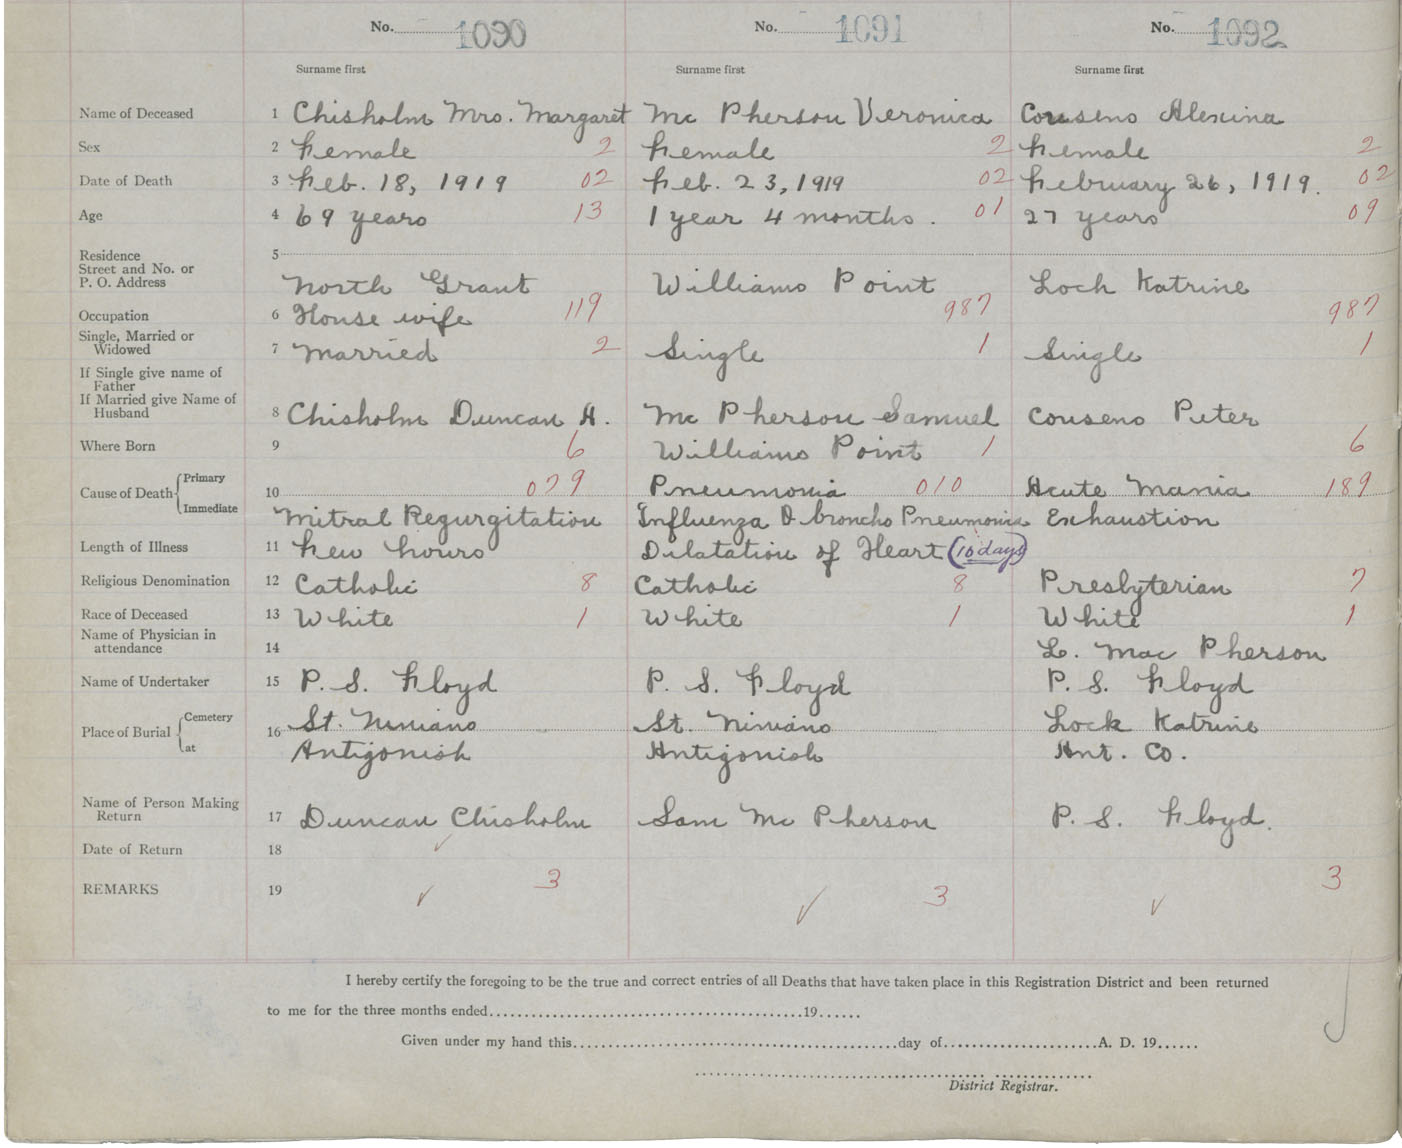 No. 1090 No. 1091 No. 1092
Surname first Surname first Surname first
Name of Deceased 1 Chisholm Mrs. Margaret Mc Pherson Veronica Couseno Alexina
Sex 2 Female 2 Female 2 Female 2
Date of Death 3 Feb. 18, 1919 02 Feb. 23, 1919 02 February 26, 1919. 02
Age 4 69 years 13 1 year 4 months. 01 27 years 09
Residence 5
Street and No. or
P. O. Address North Grant Williams Point Loch Katrine
Occupation 6 House wife 119 987 987
Single, Married or
Widowed 7 Married 2 Single 1 Single 1
If Single give name of
Father
If Married give Name of
Husband 8 Chisholm Duncan H. Mc Pherson Samuel Couseno Peter
Where Born 9 6 Williams Point 1 6
Cause of Death Primary 10 079 Pneumonia 010 Acute Mania 189
Immediate Mitral Regurgitation Influenza & broncho Pneumonia Exhaustion
Length of Illness 11 Few hours Dilatation of Heart (10 days)
Religious Denomination 12 Catholic 8 Catholic 8 Presbyterian 7
Race of Deceased 13 White 1 White 1 White 1
Name of Physician in
attendance 14 L. Mac Pherson
Name of Undertaker 15 P. S. Floyd P. S. Floyd P. S. Floyd
Place of Burial Cemetery 16 St. Ninians St. Ninians Lock Katrine
at Antigonish Antigonish Ant. Co.
Name of Person Making
Return 17 Duncan Chisholm Sam Mc Pherson P. S. Floyd.
Date of Return 18
REMARKS 19 3 3 3
I hereby certify the foregoing to be the true and correct entries of all Deaths that have taken place in this Registration District and been returned
to me for the three months ended........................................19......
Given under my hand this..............................................day of......................A. D. 19......
District Registrar.